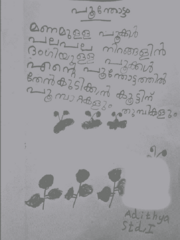 പൂന്തോട്ടം
മണമുള്ള പൂക്കൾ
പലപല നിറങ്ങളിൻ
ഭംഗിയുള്ള പൂക്കൾ
എന്റെ പൂന്തോട്ടത്തിൽ
തേൻകുടിക്കാൻ കൂട്ടിന്
പൂമ്പാറ്റകളും തുമ്പികളും
Adithya
Std.I